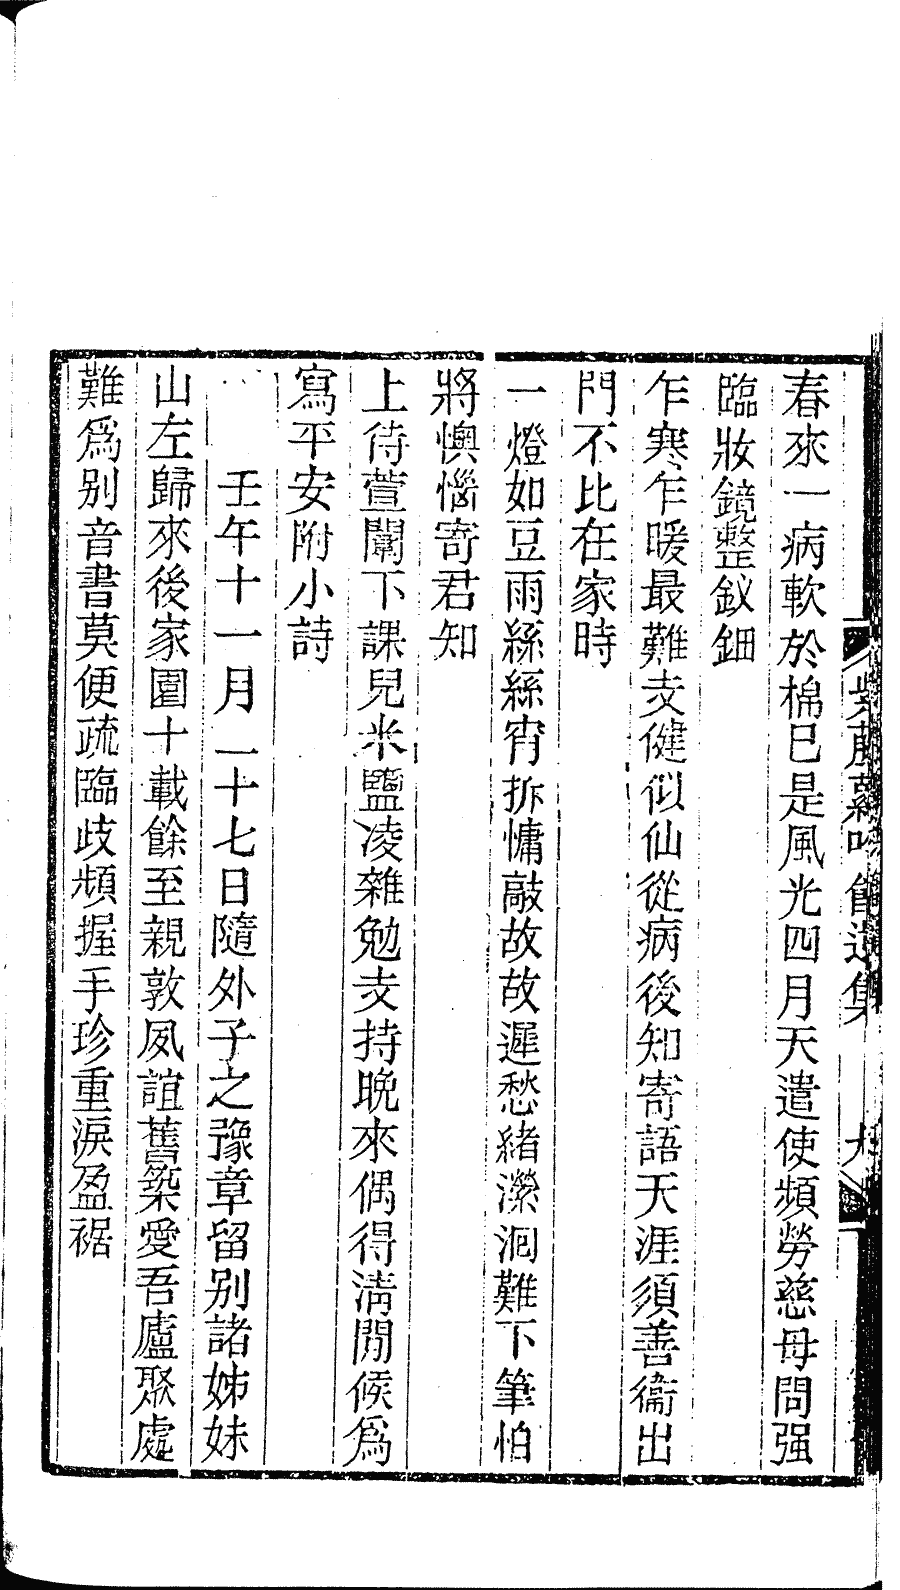 春來一病軟於棉已是風光四月天遣使頻勞慈母問强
臨妝鏡整釵鈿
乍寒乍暖最難支健似仙從病後知寄語天涯須善衞出
門不比在家時
一燈如豆雨絲絲宵拆慵敲故故遲愁緒瀠洄難下筆怕
將懊惱寄君知
上待萱闈下課兒米鹽凌雜勉支持晚來偶得清閒候爲
寫平安附小詩
壬午十一月二十七日隨外子之豫章留别諸姊妹
山左歸來後家園十載餘至親敦夙誼舊築愛吾廬聚處
難爲别音書莫便疏臨歧頻握手珍重淚盈裾